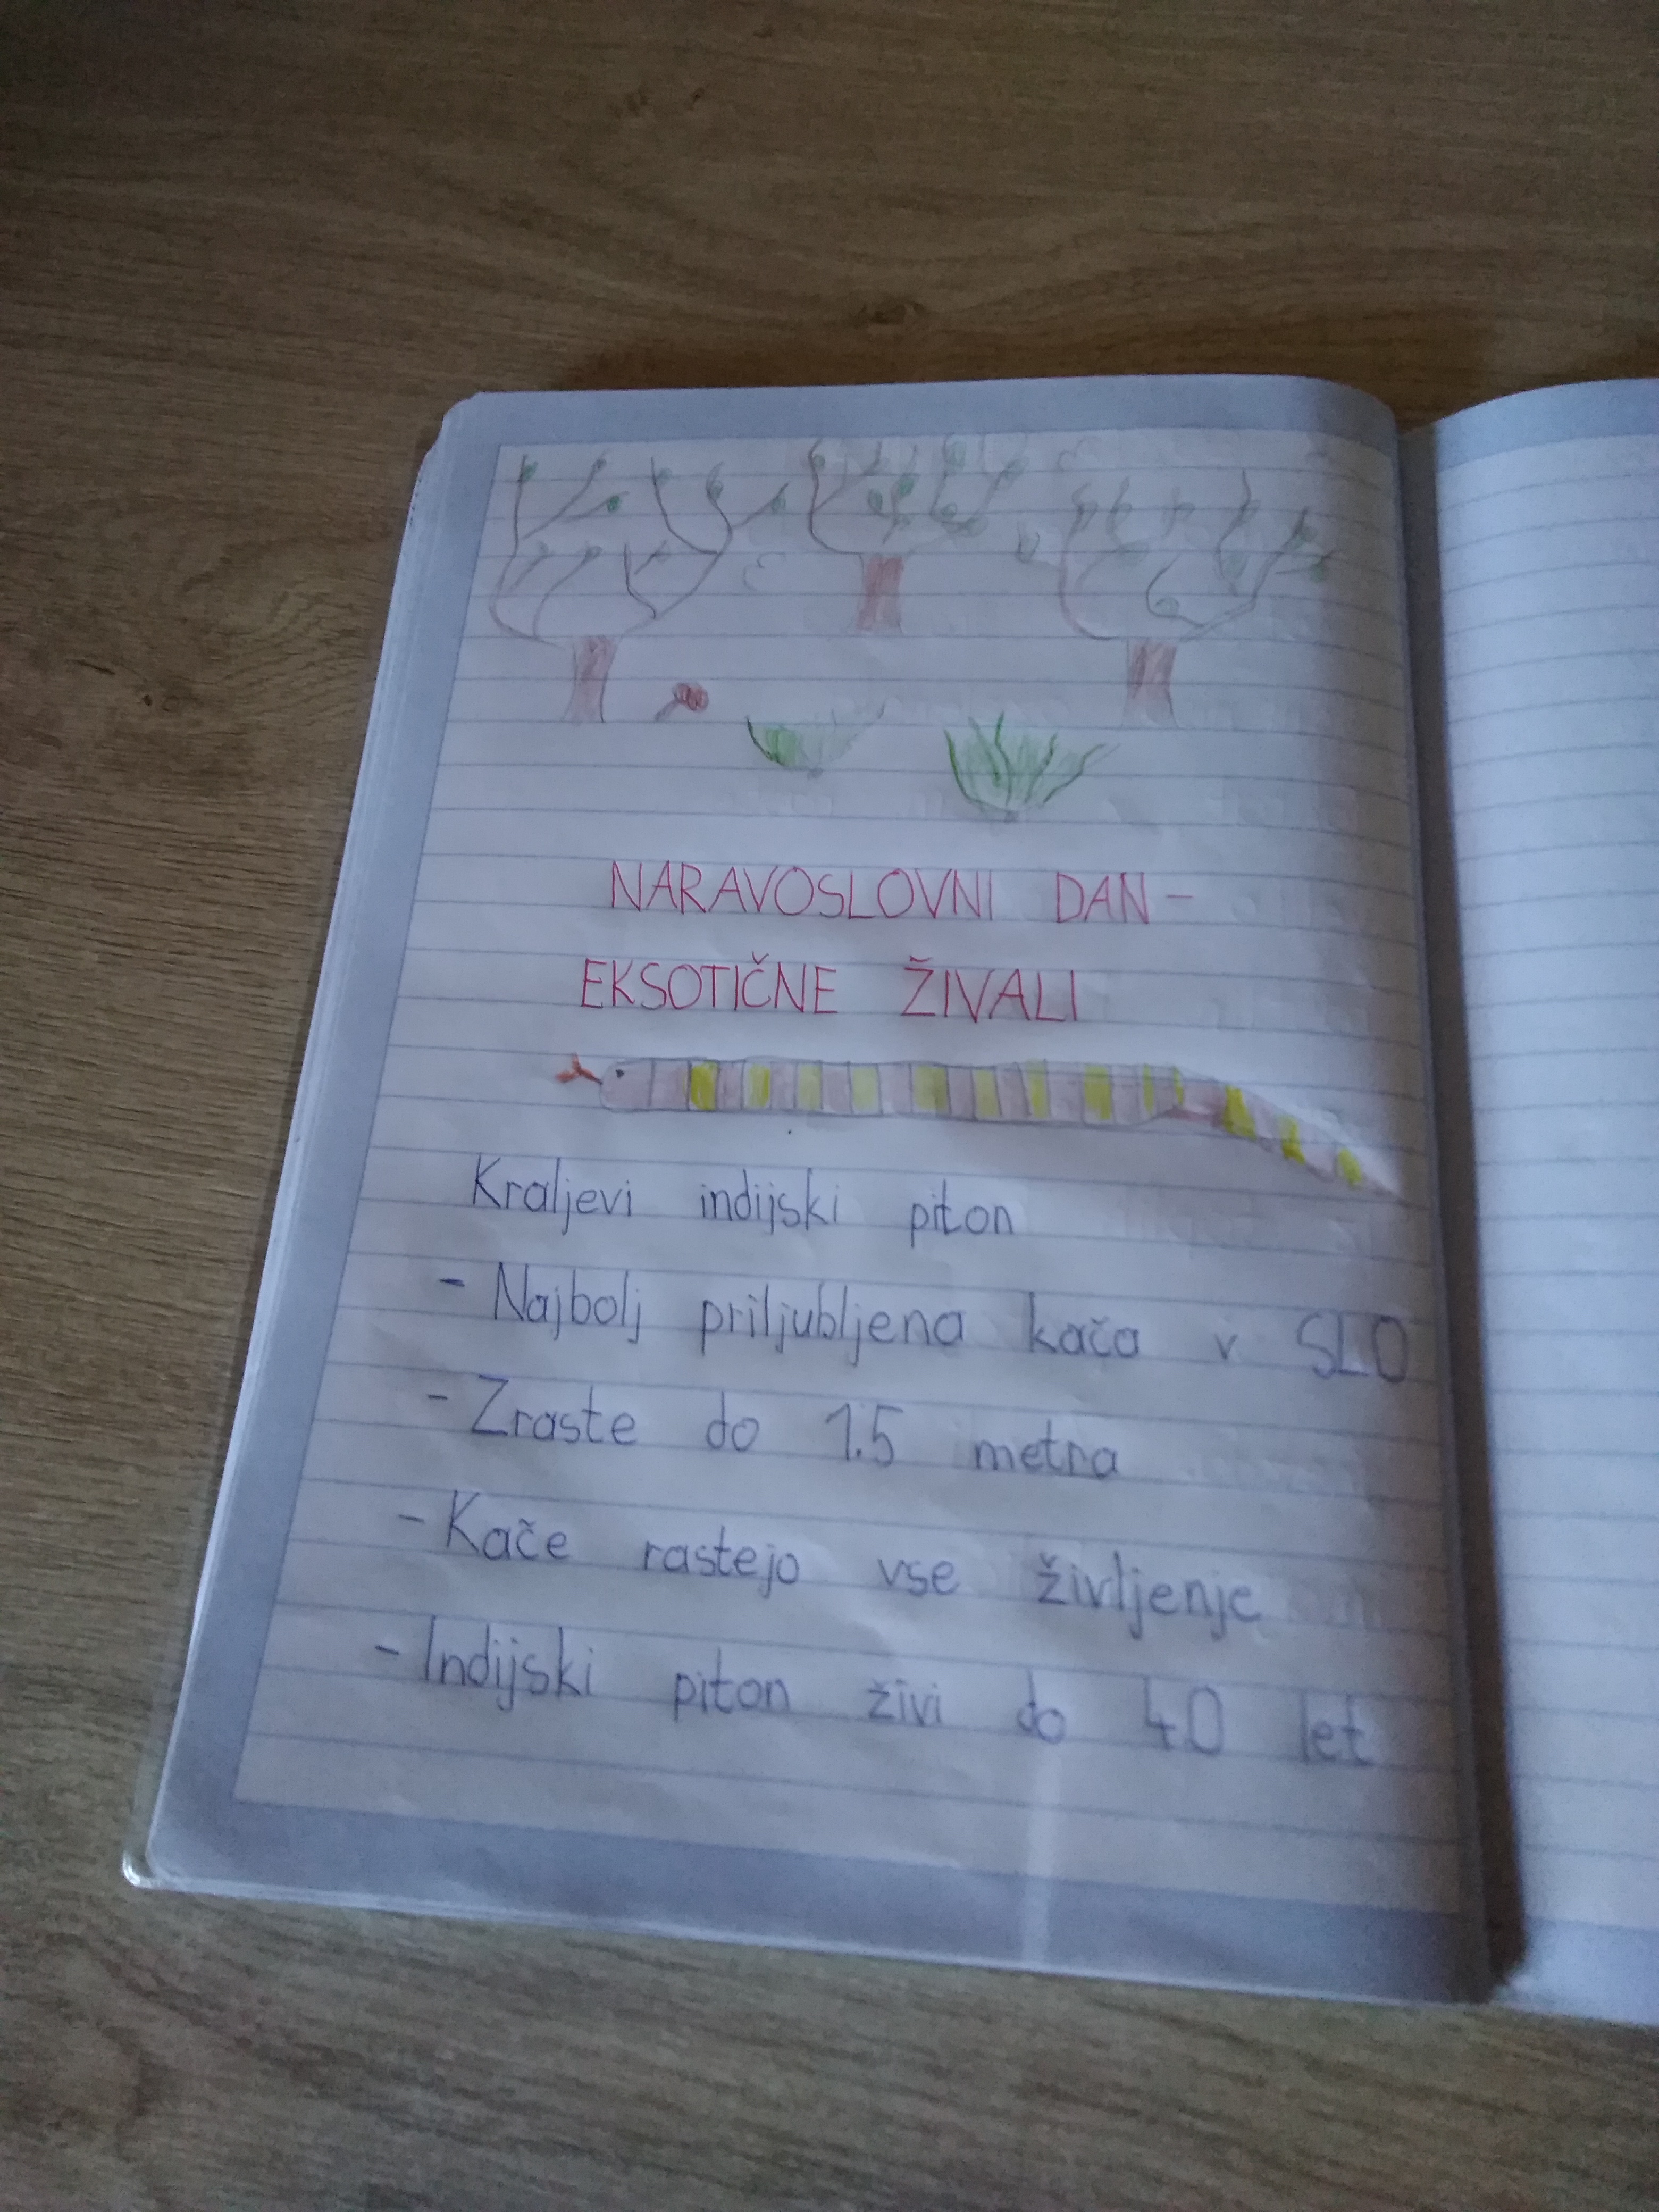 NARAVOSLOVNI DAN -
EKSOTIČNE ŽIVALI
Kraljevi indijski piton
- Najbolj priljubljena kača v SLO
- Zraste do 1.5 metra
- Kače rastejo vse življenje
- Indijski piton živi do 40 let